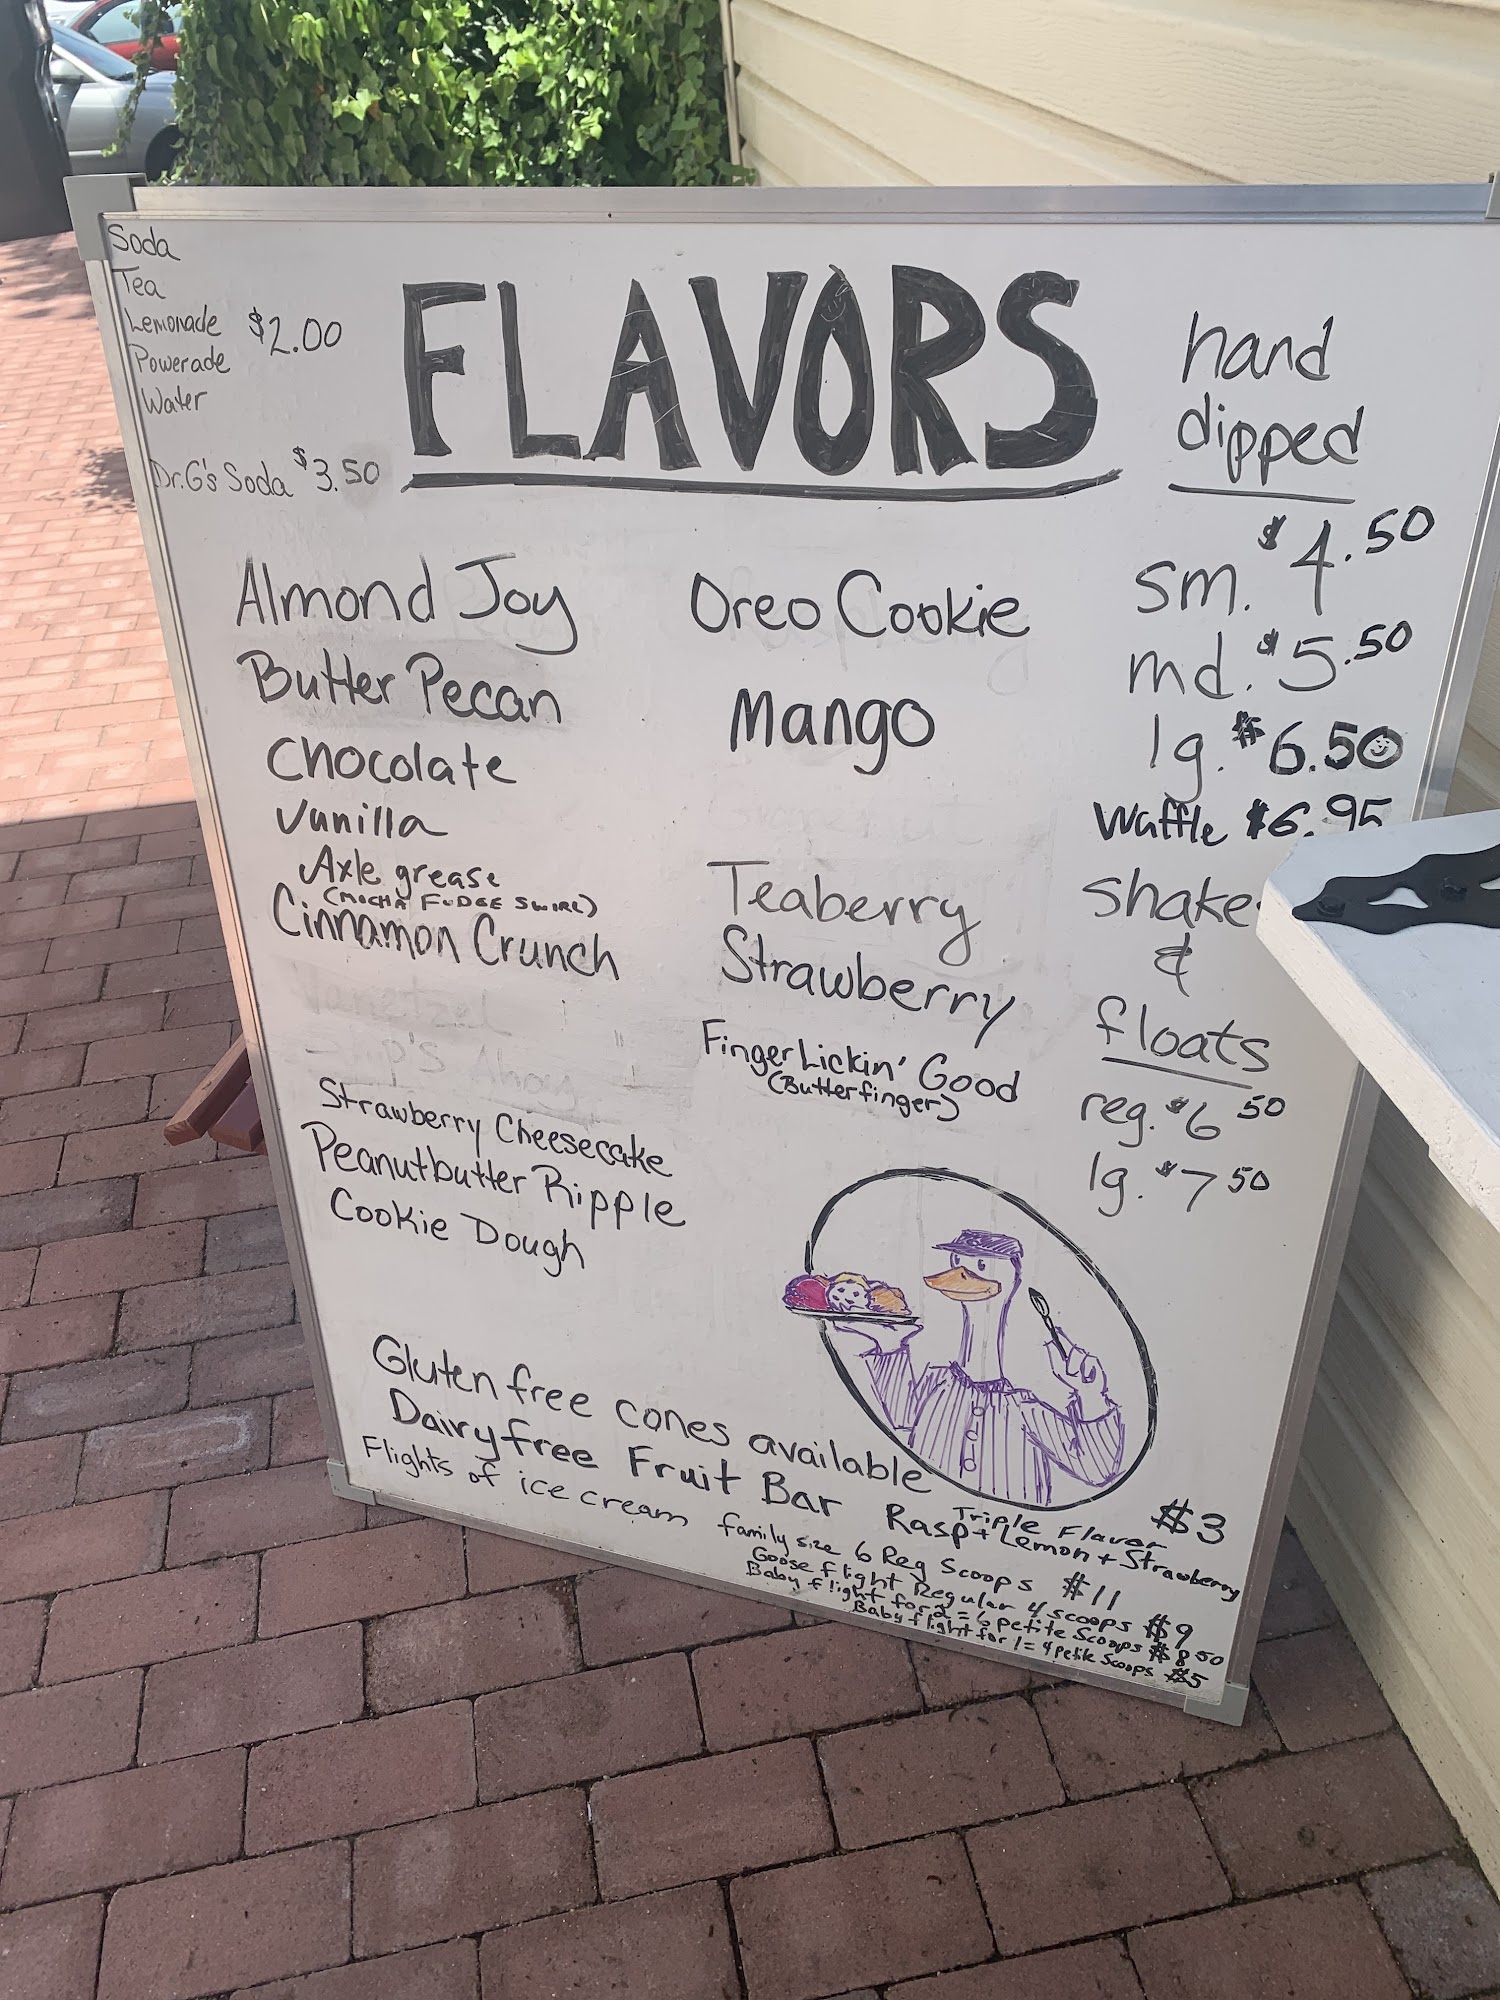 Soda
Tea
Lemonade $2.00
Powerade
Water
Dr.G's Soda $3.50
FLAVORS
Almond Joy
Butter Pecan
Chocolate
Vanilla
Axle grease
(MOCHA FUDGE SWIRL)
Cinnamon Crunch
Strawberry Cheesecake
Peanutbutter Ripple
Cookie Dough
Oreo Cookie
Mango
Teaberry
Strawberry
Finger Lickin' Good
(Butterfinger)
hand
dipped
sm. $4.50
md. $5.50
lg. $6.50
Waffle $6.95
shake
&
floats
reg. $6 50
lg. $7 50
Gluten free cones available
Dairy free Fruit Bar Triple Flavor $3
Rasp + Lemon + Strawberry
Flights of ice cream family size 6 Reg Scoops $11
Goose flight Regular 4 scoops $9
Baby flight for 2 = 6 petite Scoops $8 50
Baby flight for 1 = 4 petite Scoops $5